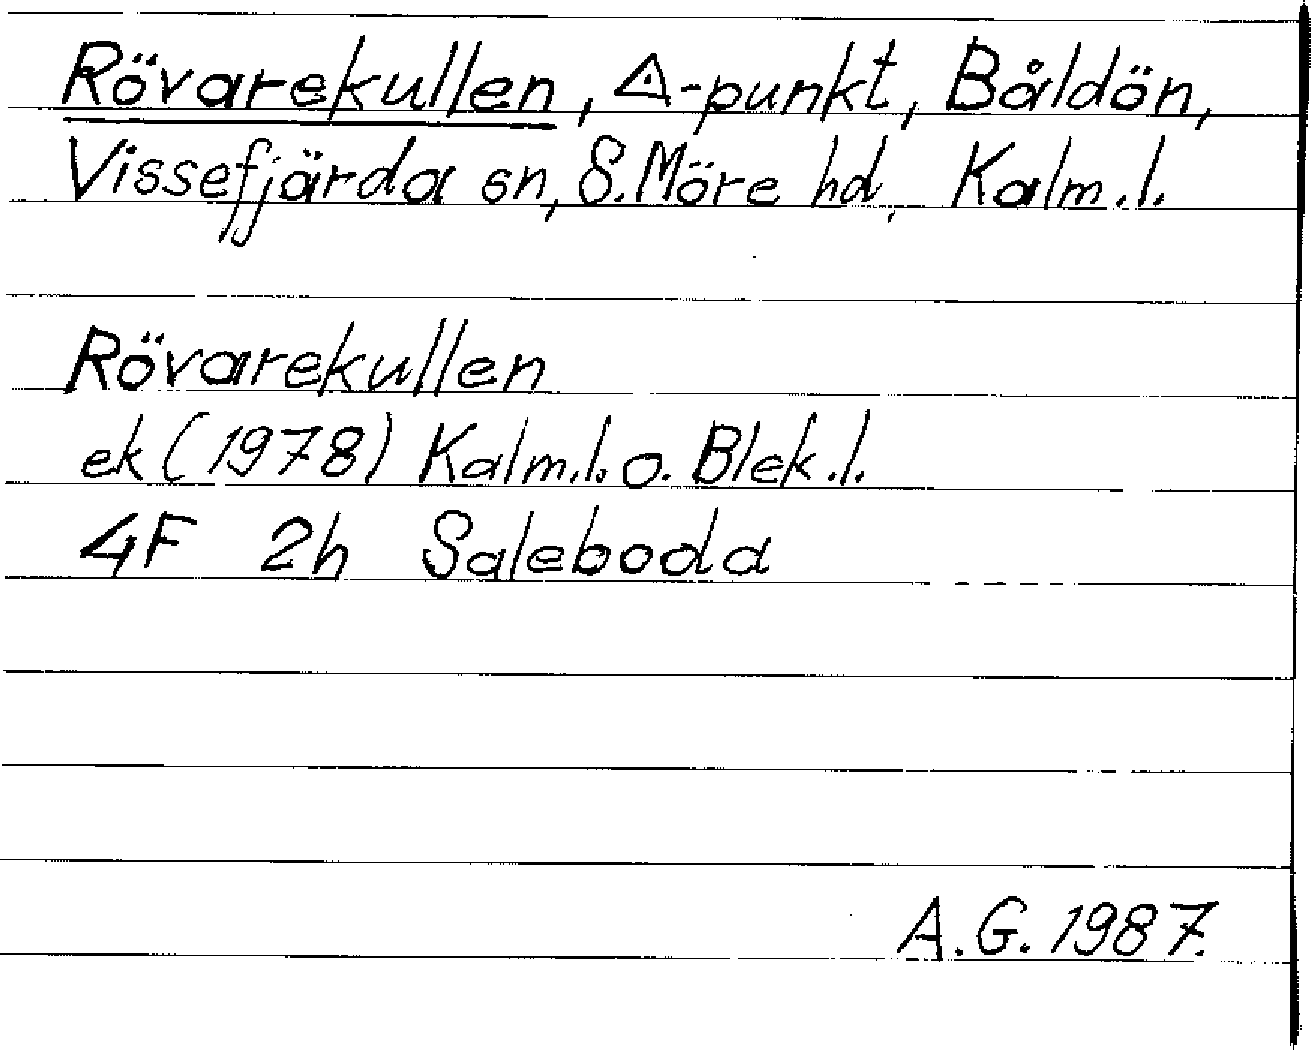 Rövarekullen, △-punkt, Båldön,
Vissefjärda sn, S. Möre hd, Kalm.l.
Rövarekullen
ek (1978) Kalm.l. o. Blek.l.
4F 2h Saleboda
A.G. 1987.